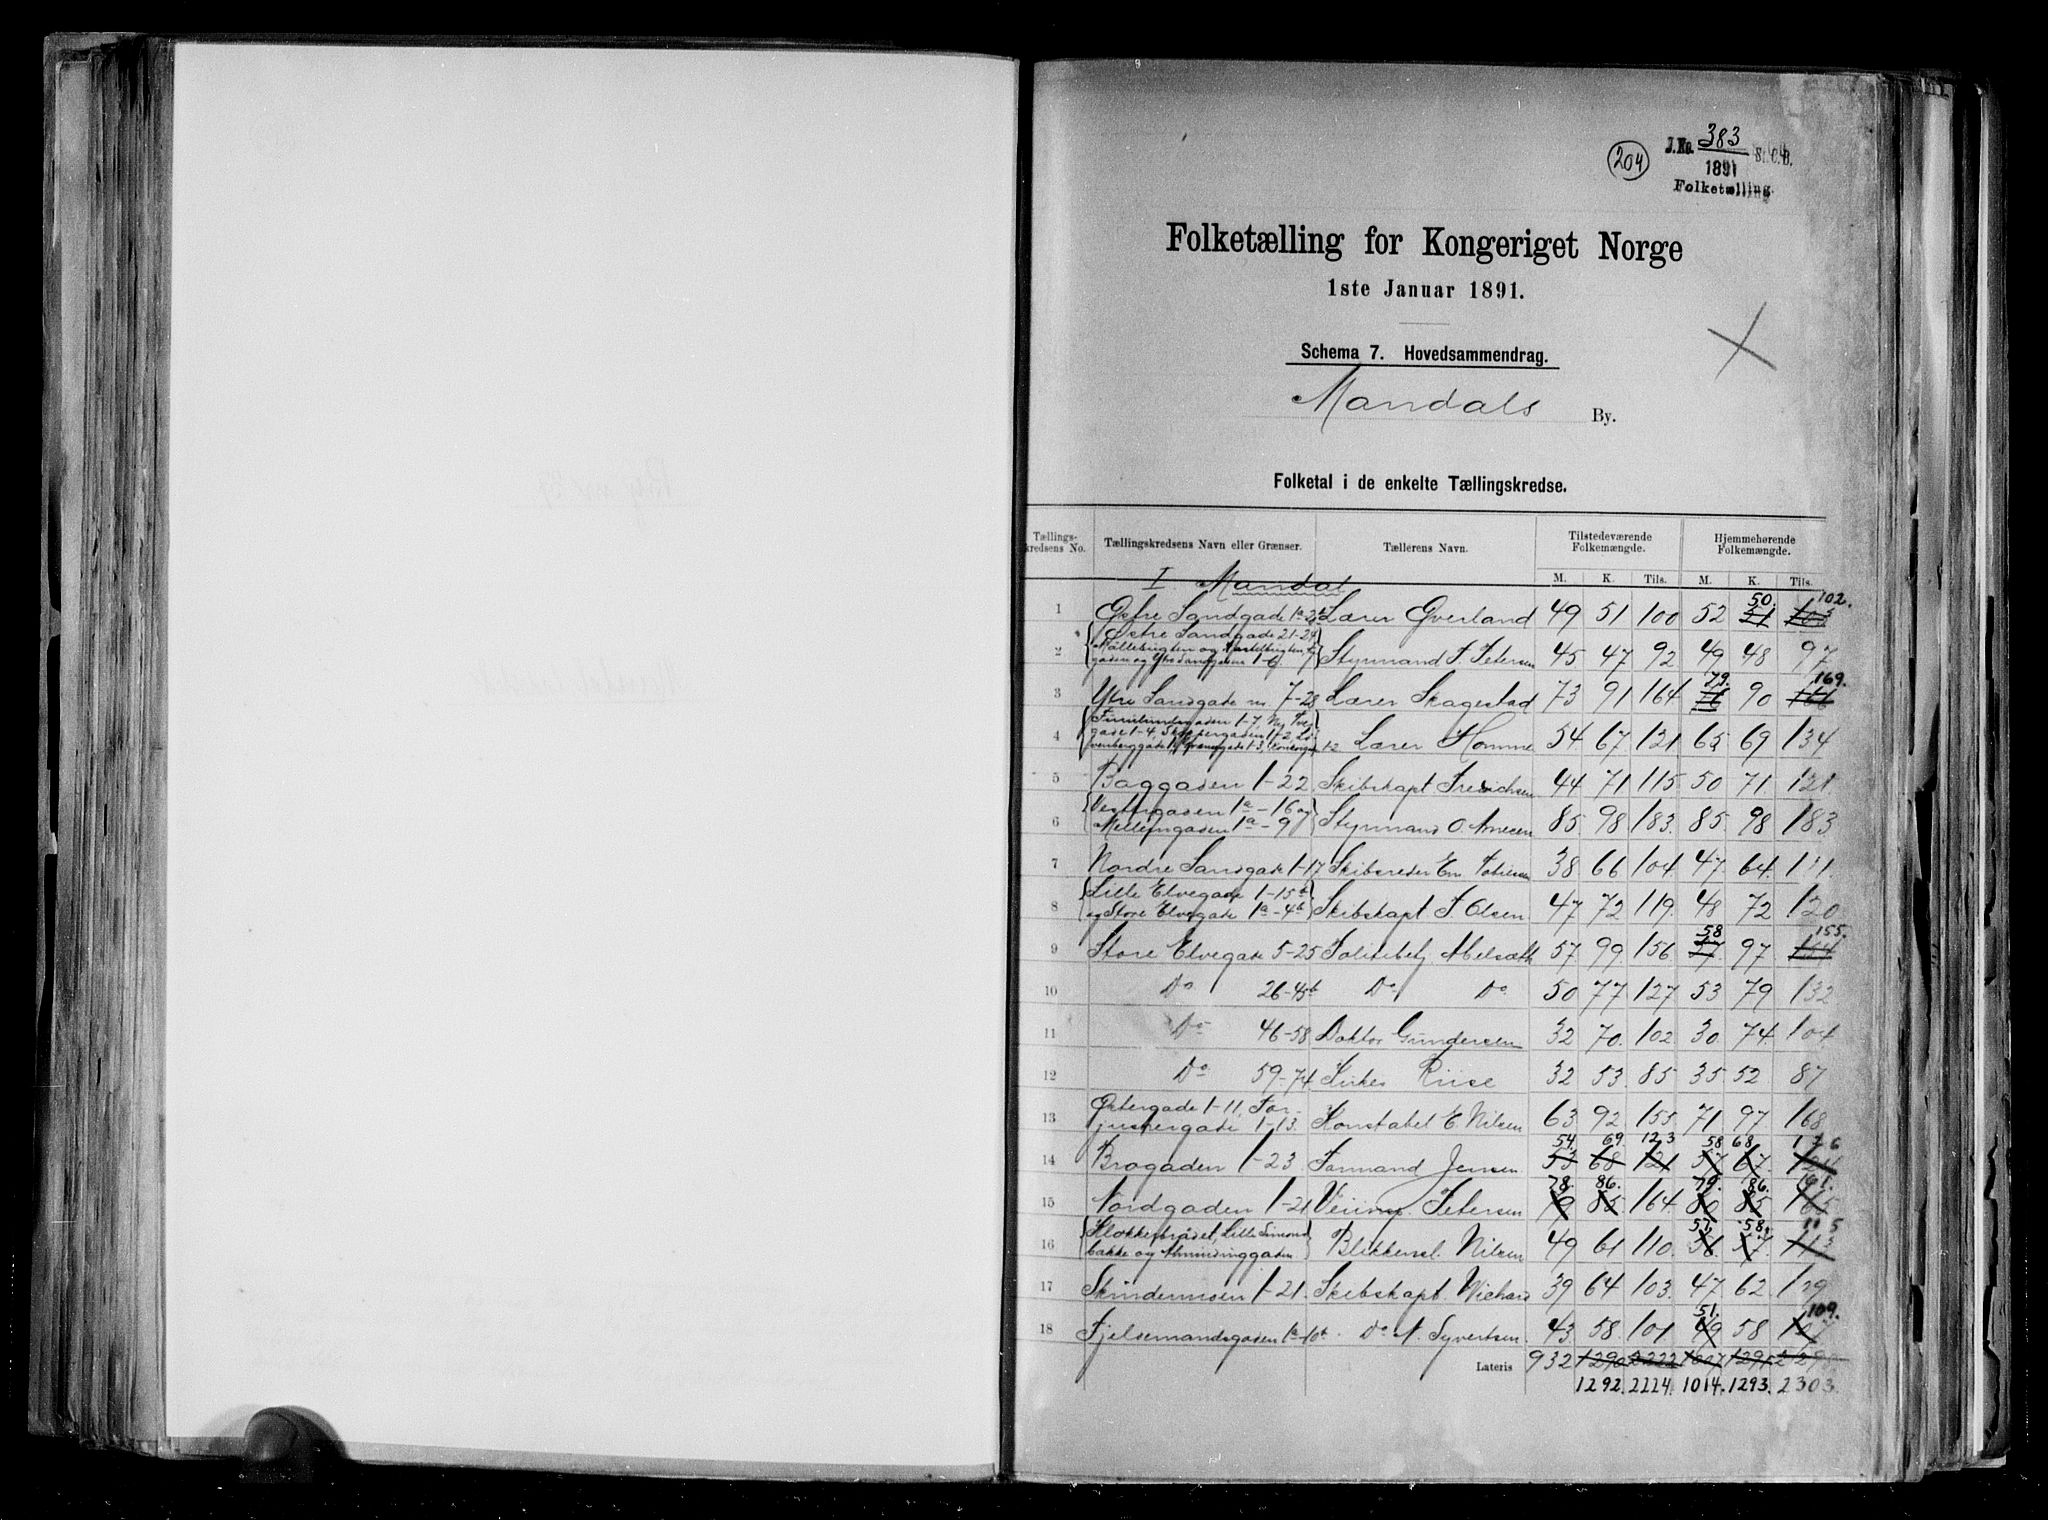 204
J.No. 383 St. C. B.
1891
Folketælling
Folketælling for Kongeriget Norge
1ste Januar 1891.
Schema 7. Hovedsammendrag.
Mandals By.
Folketal i de enkelte Tællingskredse.
Tællingskredsens No. Tællingskredsens Navn eller Grænser. Tællerens Navn. Tilstedeværende Folkemængde. Hjemmehørende Folkemængde.
M. K. Tils. M. K. Tils.
I. Mandal
50. 102.
1 Østre Sandgade Lærer Øverland 49 51 100 52 51 103
Østre Sandgade 21-24
2 45 47 92 49 48 97
gaden og Ytre Sandgaden 1-6 Styrmand T. Petersen
79. 169.
3 Ytre Sandgade no 7-28 Lærer Skagestad 73 91 164 76 90 166
4 Lærer Homme 54 67 121 65 69 134
5 Baggaden 1-22 Skibskapt Fredrichsen 44 71 115 50 71 121
Vestergaden 1a-16 og
6 Mellemgaden 1a-9 Styrmand O. 85 98 183 85 98 183
7 Nordre Sandgade 1-17 Skibsreder Em. Tobiesen 38 66 104 47 64 111
Lille Elvegade 1-15b
8 og Store Elvegade 1a-4b Skibskapt. T. Olsen 47 72 119 48 72 120
58 155.
9 Store Elvegade 5-25 Politibetj. 57 99 156 57 97 154
10 Do 26-45b Do Do 50 77 127 53 79 132
11 Do 46-58 Doktor Gundersen 32 70 102 30 74 104
12 Do 59-74 Riise 32 53 85 35 52 87
Østergade 1-11, Tor-
13 1-13. Konstabel E. Nilsen 63 92 155 71 97 168
54. 69. 123 58 68 126
14 Brogaden 1-23 Formand Jensen 53 68 121 57 67 124
78. 86. 79. 86.
15 Nordgaden 1-21 Petersen 79 85 164 80 85 165
57. 58. 115
Klokkerbrådet, Lille
16 bakke og Almindinggaden Blikkensl. Nilsen 49 61 110 56 57 113
17 Skindermoen 1-21. Skibskapt. 39 64 103 47 62 109
51. 109.
18 Fjelsemandsgaden 1a-10b Do N. Syvertsen. 43 58 101 49 58 107
Lateris 932 1290 2222 1007 1291
1292. 2224. 1014. 1293. 2303.